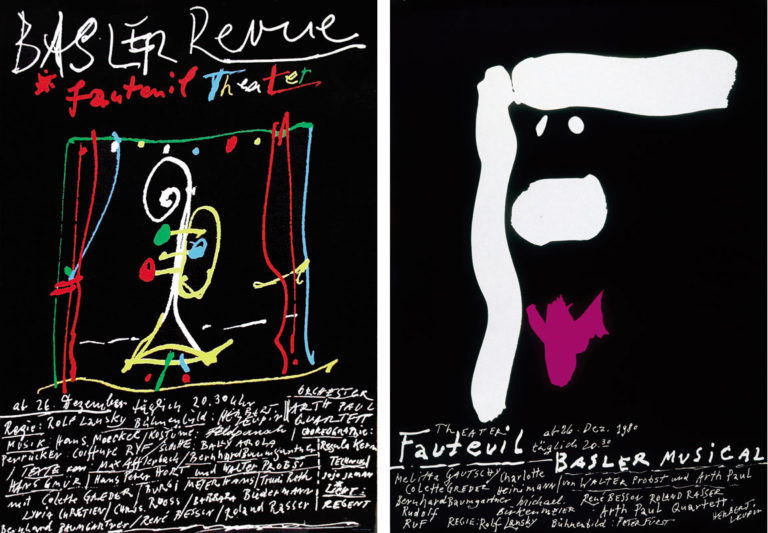 BASLER Revue
* Fauteuil Theater
ab 26. Dezember täglich 20.30 Uhr
Regie: Rolf Lansky Bühnenbild: HERBERT LEUPIN
MUSIK: Hans Moeckel KOSTÜME:
Perrücken: Coiffure RUF
TEXTE von MAX Afflerbach / Bernhard Baumgartner
HANS GMÜR / Hans Peter HORT und WALTER PROBST
mit Colette GREDER / Trudi Roth
LYVIA CHRETIEN / CHRIS ROOSS / BARBARA Büdermann
Bernhard BAUMGARTNER / RENÉ BESSON / Roland Rasser
ORCHESTER
ARTH PAUL
QUARTETT
CHOREOGRAPHIE:
Regula Kern
TECHNIK:
Jojo Jamann
LICHT:
REGENT
THEATER
Fauteuil
ab 26. Dez. 1980
täglich 20.30
BASLER MUSICAL
Melitta GAUTSCHY / Charlotte
Colette GREDER Heinimann / von WALTER Probst und Arth Paul
Bernhard Baumgartner Michael René BESSON ROLAND RASSER
Rudolf Birkenmeier Arth Paul Quartett
RUF REGIE: Rolf Lansky Bühnenbild: PETER FÜRST
HERBERT LEUPIN